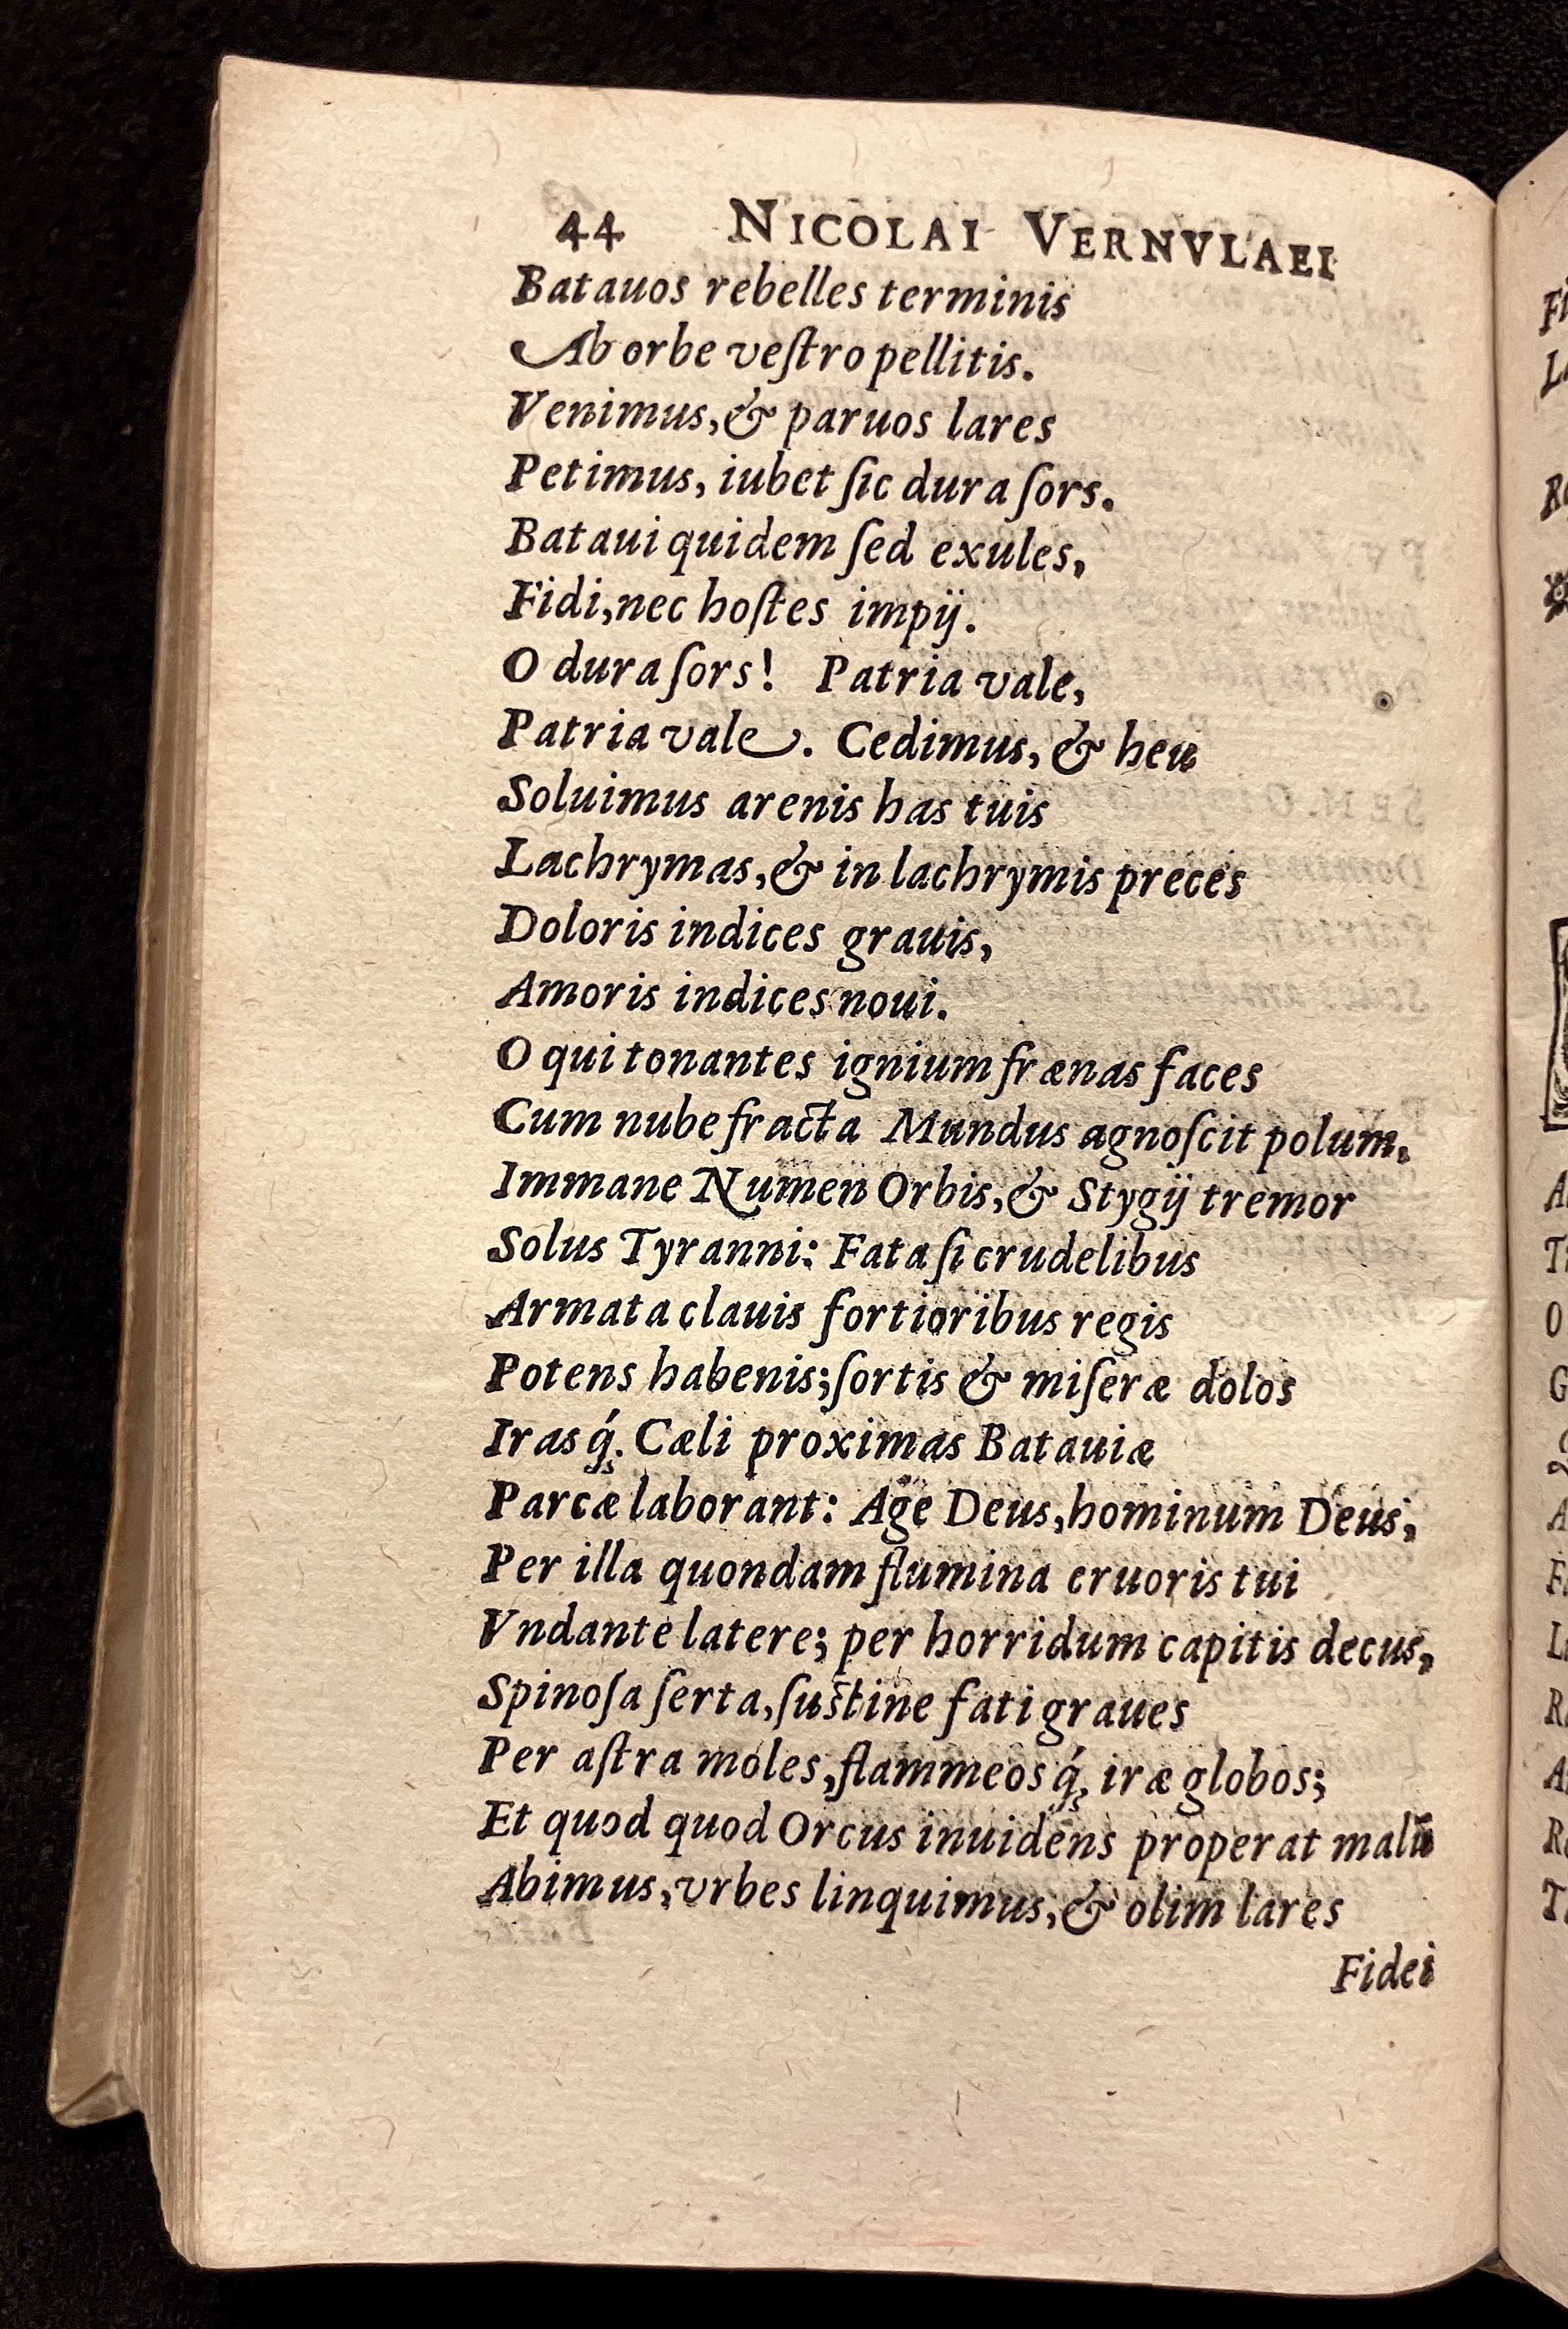 44 NICOLAI VERNVLAEI
Batauos rebelles terminis
Ab orbe veſtro pellitis.
Venimus,& paruos lares
Petimus, iubet ſic dura ſors.
Bataui quidem ſed exules,
Fidi,nec hoſtes impij.
O dura ſors! Patria vale,
Patria vale. Cedimus, & heu
Soluimus arenis has tuis
Lachrymas,& in lachrymis preces
Doloris indices grauis,
Amoris indices noui.
O qui tonantes ignium frænas faces
Cum nube fracta Mundus agnoſcit polum.
Immane Numen Orbis,& Stygij tremor
Solus Tyranni: Fata ſi crudelibus
Armata clauis fortioribus regis
Potens habenis;ſortis & miſeræ dolos
Iras q́;. Cæli proximas Batauiæ
Parcæ laborant: Age Deus,hominum Deus,
Per illa quondam flumina cruoris tui
Vndante latere; per horridum capitis decus,
Spinoſa ſerta,ſuſtine fati graues
Per aſtra moles,flammeos q́; iræ globos;
Et quod quod Orcus inuidens properat malū
Abimus,vrbes linquimus,& olim lares
Fidei